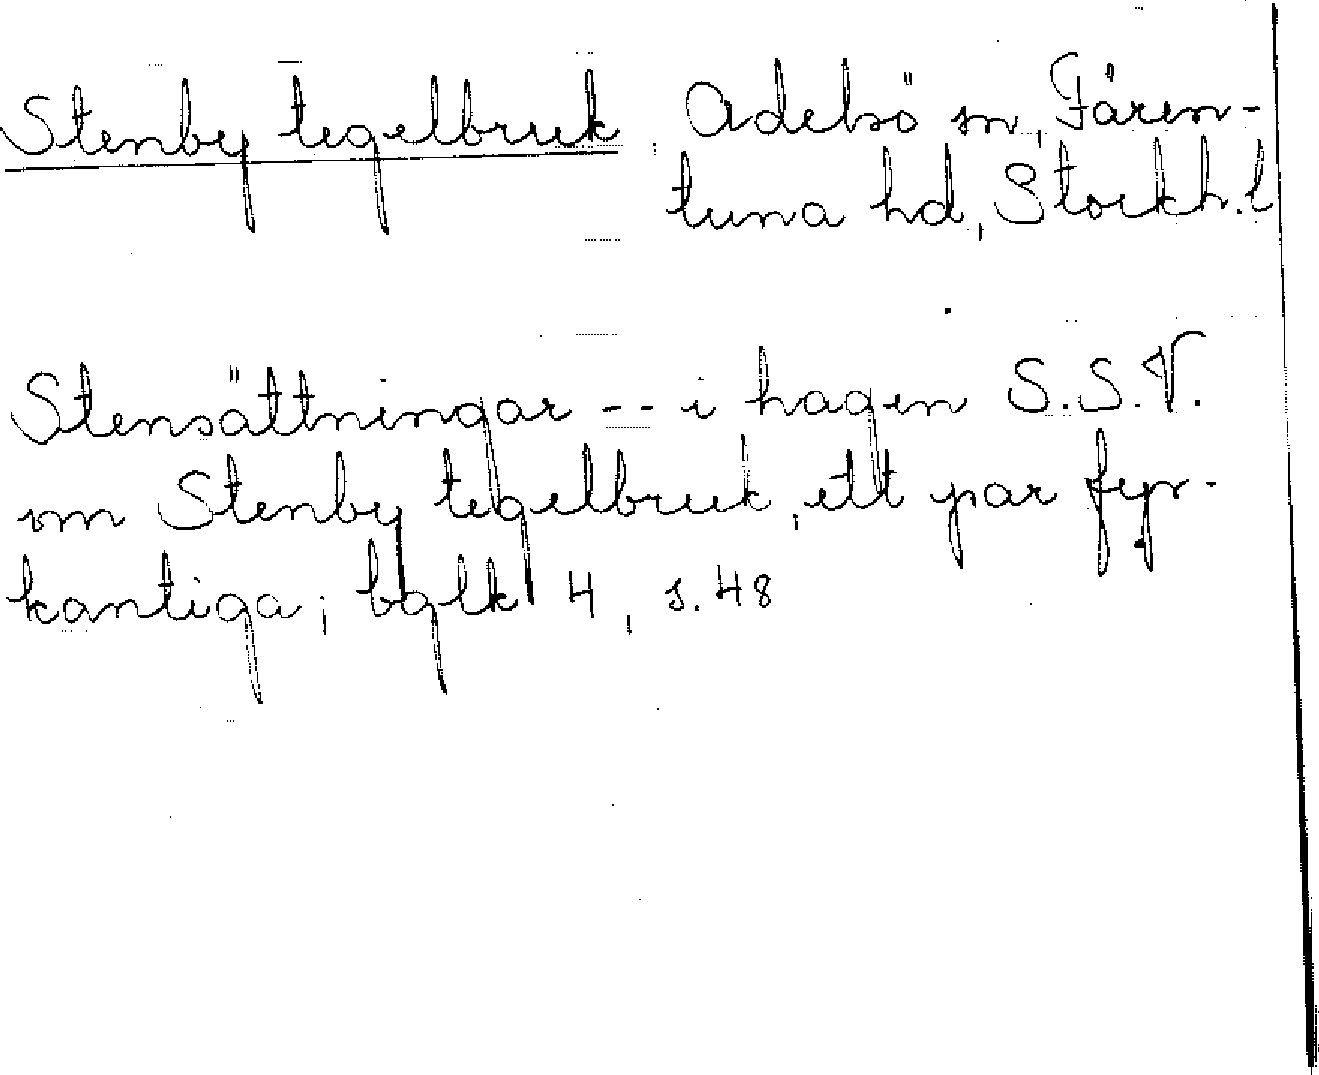 Stenby tegelbruk Adelsö sn, Fären-
tuna hd, Stockh. l
Stensättningar -- i hagen S.S.V.
om Stenby tegelbruk, ett par fyr-
kantiga; bglk 4, s. 48